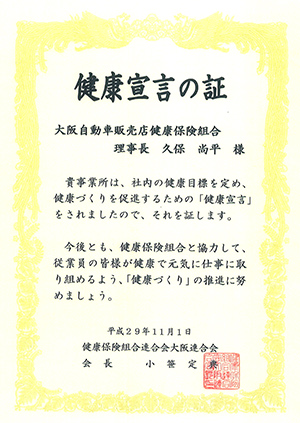 健康宣言の証
大阪自動車販売店健康保険組合
理事長 久保 尚平 様
貴事業所は、社内の健康目標を定め、
健康づくりを促進するための「健康宣言」
をされましたので、それを証します。
今後とも、健康保険組合と協力して、
従業員の皆様が健康で元気に仕事に取
り組めるよう、「健康づくり」の推進に努
めましょう。
平成29年11月1日
健康保険組合連合会大阪連合会
会長 小笹定典